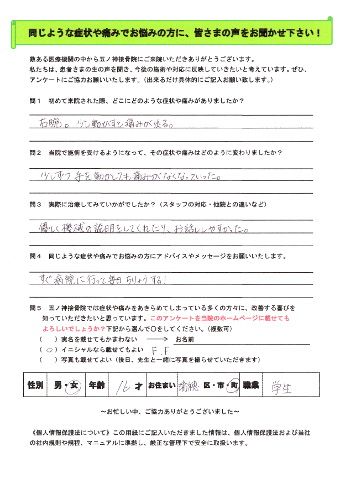 同じような症状や痛みでお悩みの方に、皆さまの声をお聞かせ下さい！
数ある医療機関の中から五ノ神接骨院にご来院いただきありがとうございます。
私たちは、患者さまの生の声を聞き、今後の施術や対応に反映していきたいと考えています。ぜひ、
アンケートにご協力お願いいたします。（出来るだけ具体的にご記入お願い致します。）
問１ 初めて来院された際、どこにどのような症状や痛みがありましたか？
右腕。少し動かすと痛みが出る。
問２ 当院で施術を受けるようになって、その症状や痛みはどのように変わりましたか？
少しずつ手を動かしても痛みがなくなっていった。
問３ 実際に治療してみていかがでしたか？（スタッフの対応・他院との違いなど）
優しく機械の説明をしてくれたり、お話ししやすかった。
問４ 同じような症状や痛みでお悩みの方にアドバイスやメッセージをお願いします。
すぐ病院に行って
問５ 五ノ神接骨院では症状や痛みをあきらめてしまっている多くの方々に、改善する喜びを
知っていただきたいと思っています。このアンケートを当院のホームページに載せても
よろしいでしょうか？下記から選んで〇をしてください。（複数可）
（ ）実名を載せてもかまわない → お名前
（〇）イニシャルなら載せてもよい F.F
（ ）写真も載せてよい（後日、先生と一緒に写真を撮らせていただきます）
性別 男・女 年齢 16才 お住まい 瑞穂 区・市・町 職業 学生
～お忙しい中、ご協力ありがとうございました～
《個人情報保護法について》この用紙にご記入いただきました情報は、個人情報保護法および当社
の社内規則や規程、マニュアルに準拠し、厳正な管理下で安全に取扱います。